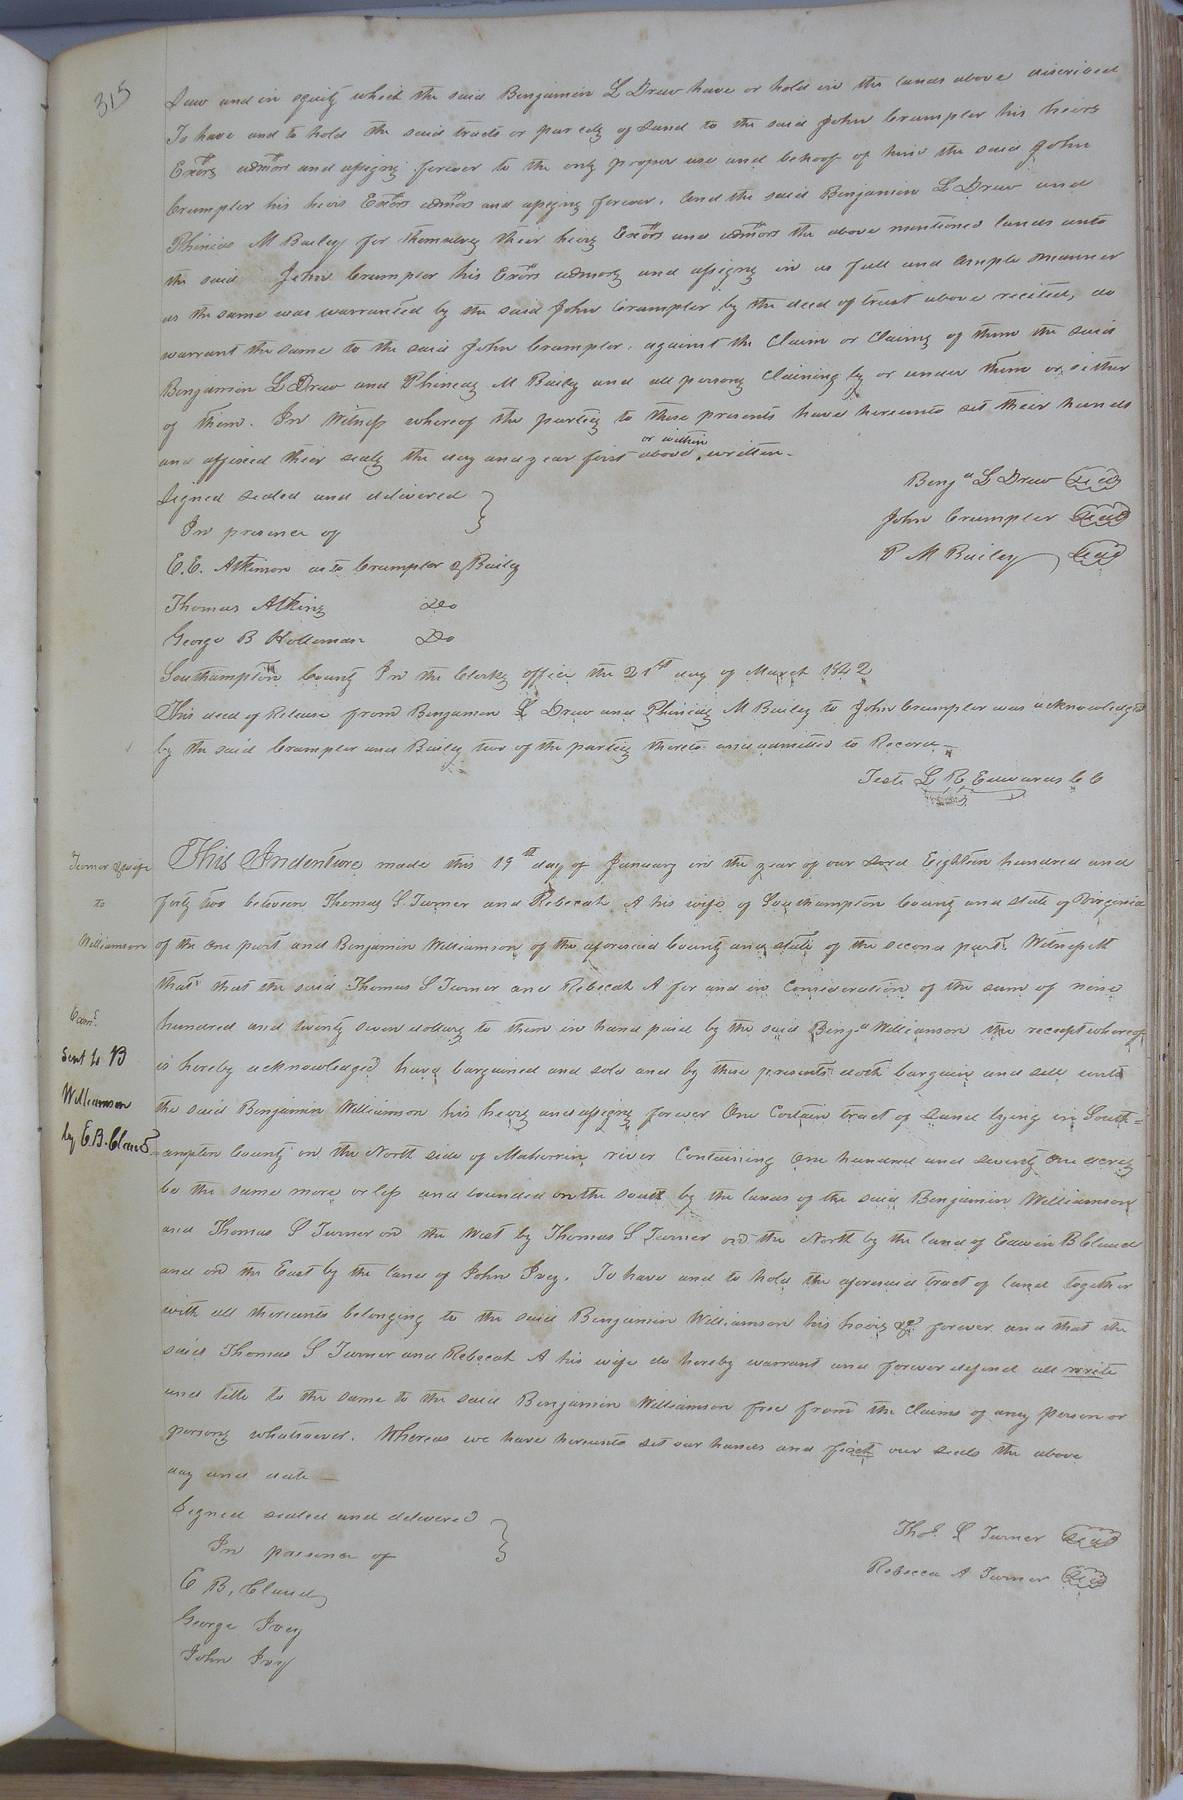 315
Law and in equity which the said Benjamin L Drew have or hold in the lands above discribed
To have and to hold the said tracts or parcels of Land to the said John Crumpler his heirs
Exors admors and assigns forever to the only proper use and behoof of him the said John
Crumpler his heirs Exors admors and assigns forever. And the said Benjamin L Drew and
Phineas M Bailey for themselves their heirs Exors and admors the above mentioned lands unto
the said John Crumpler his Exors admors and assigns in as full and ample manner
as the same was warranted by the said John Crumpler by the deed of trust above recited, do
warrant the same to the said John Crumpler. against the Claim or Claims of them the said
Benjamin L Drew and Phineas M Bailey and all persons Claiming by or under them or either
of them. In Witness whereof the parties to these presents have hereunto set their hands
and affixed their seals the day and year first above or within written.
Signed sealed and delivered
In presence of
Benja L Drew Seal
John Crumpler Seal
P M Bailey Seal
E. E. Atkinson as to Crumpler & Bailey
Thomas Atkins Do
George B Holleman Do
Southampton County In the Clerks office the 21st day of March 1842
This deed of Release from Benjamin L Drew and Phineas M Bailey to John Crumpler was acknowledged
by the said Crumpler and Bailey two of the parties thereto and admitted to Record
Teste L R Edwards C C
Turner & wife
to
Williamson
Exam.
Sent to B
Williamson
by E. B. Claud
This Indenture made this 19th day of January in the year of our Lord Eighteen hundred and
forty two between Thomas S Turner and Rebecah A his wife of Southampton County and state of Virginia
of the one part and Benjamin Williamson of the aforesaid County and state of the second part. Witnesseth
that that the said Thomas S Turner and Rebecah A for and in Consideration of the sum of nine
hundred and twenty seven dollars to them in hand paid by the said Benja Williamson the receipt whereof
is hereby acknowledged have bargained and sold and by these presents doth bargain and sell unto
the said Benjamin Williamson his heirs and assigns forever One Certain tract of Land lying in South=
=ampton County on the North side of Maherrin river Containing One hundred and seventy One acres
be the same more or less and bounded on the south by the lands of the said Benjamin Williamson
and Thomas S Turner on the West by Thomas S Turner on the North by the land of Edwin B Claud
and on the East by the land of John Ivey. To have and to hold the aforesaid tract of land together
with all thereunto belonging to the said Benjamin Williamson his heirs &c forever and that the
said Thomas S Turner and Rebecah A his wife do hereby warrant and forever defend all write
and title to the same to the said Benjamin Williamson free from the Claims of any person or
persons whatsoever. Whereas we have hereunto set our hands and fixt our seals the above
day and date
Signed sealed and delivered
In presence of
Thos. S Turner Seal
Rebecca A Turner Seal
E B. Claud
George Ivey
John Ivy